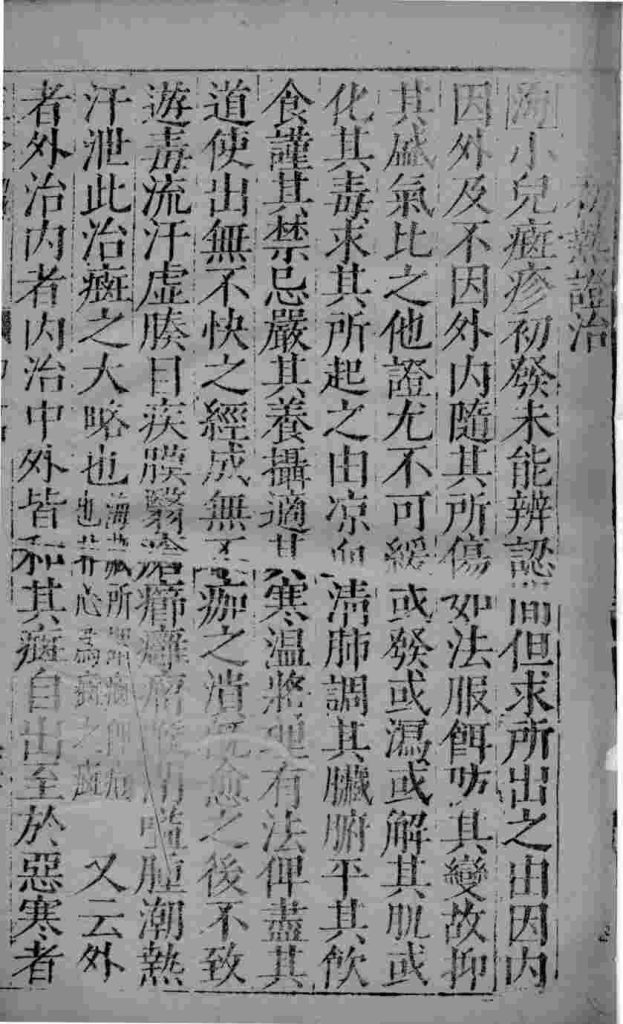 初熱證治
海小兒癍疹初發未能辨認間但求所出之由因內
因外及不因外內隨其所傷如法服餌防其變故抑
其盛氣比之他證尤不可緩或發或瀉或解其肌或
化其毒求其所起之由凉血清肺調其臟腑平其飲
食謹其禁忌嚴其養攝適其寒温將理有法俾盡其
道使出無不快之經成無不痂之潰既愈之後不致
遊毒流汗虛腠目疾膜翳瘡癤癰瘤 腫潮熱
汗泄此治癍之大略也 海藏所 也若心為癍之癍 又云外
者外治内者内治中外皆和其癍自出至於惡寒者